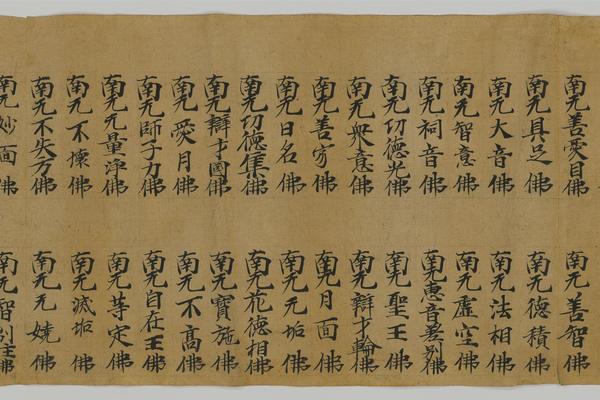 南无善愛目佛 南无善智佛
南无具足佛 南无德積佛
南无大音佛 南无法相佛
南无智意佛 南无虛空佛
南无祠音佛 南无惠音差別佛
南无功德光佛 南无聖王佛
南无衆意佛 南无辯才輪佛
南无善寂佛 南无月面佛
南无日名佛 南无无垢佛
南无功德集佛 南无花德相佛
南无辯才國佛 南无寶施佛
南无愛月佛 南无不高佛
南无師子力佛 南无自在王佛
南无无量淨佛 南无等定佛
南无不壞佛 南无滅垢佛
南无不失方佛 南无无嬈佛
南无妙面佛 南无智制住佛